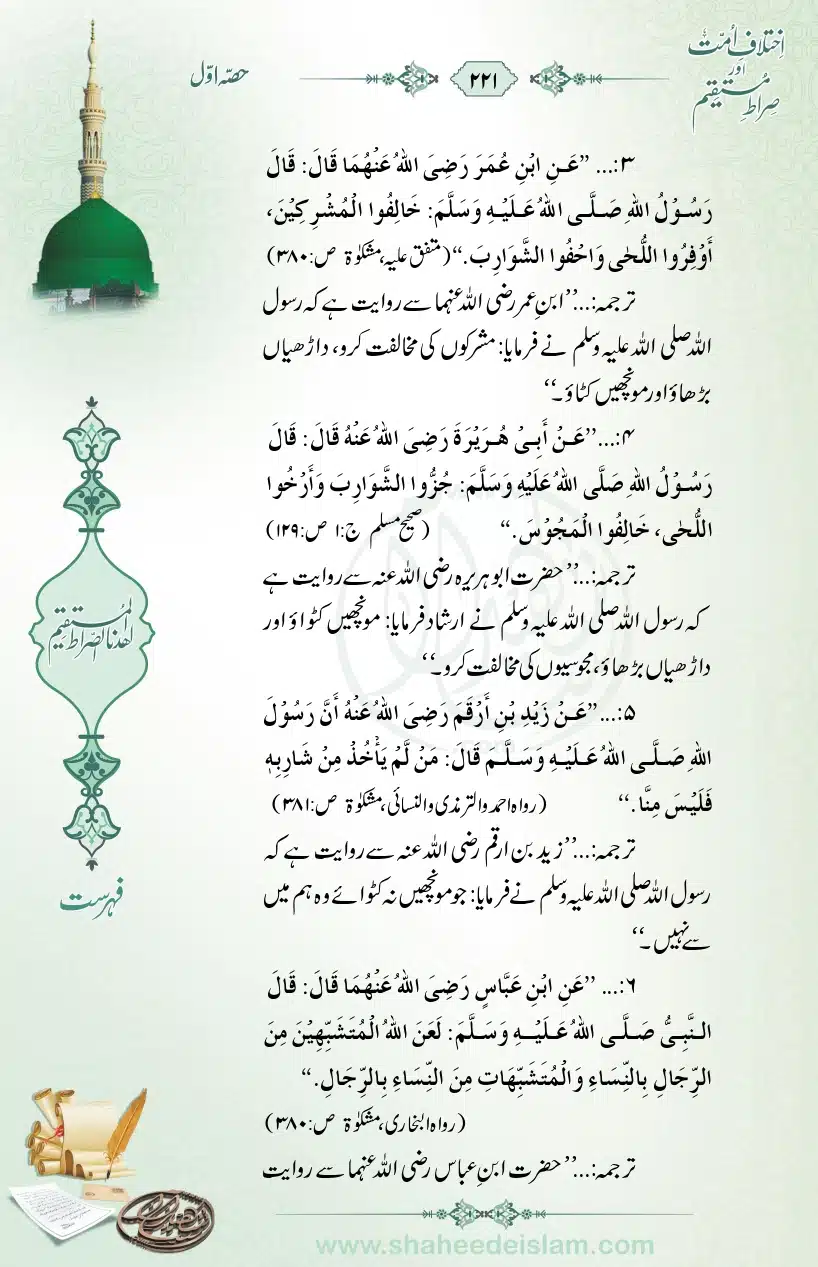 اختلافِ اُمت
اور
صراطِ مستقیم
۲۲۱
حصہ اوّل
۳:... ”عَنِ ابْنِ عُمَرَ رَضِیَ اللهُ عَنْهُمَا قَالَ: قَالَ
رَسُوْلُ اللهِ صَلَّی اللهُ عَلَیْهِ وَسَلَّمَ: خَالِفُوا الْمُشْرِکِیْنَ،
أَوْفِرُوا اللُّحٰی وَاحْفُوا الشَّوَارِبَ.“ (متفق علیہ، مشکوٰۃ ص:۳۸۰)
ترجمہ:...’’ابنِ عمر رضی اللہ عنہما سے روایت ہے کہ رسول
اللہ صلی اللہ علیہ وسلم نے فرمایا: مشرکوں کی مخالفت کرو، داڑھیاں
بڑھاؤ اور مونچھیں کٹاؤ۔‘‘
۴:...’’عَنْ أَبِیْ هُرَیْرَةَ رَضِیَ اللهُ عَنْهُ قَالَ: قَالَ
رَسُوْلُ اللهِ صَلَّی اللهُ عَلَیْهِ وَسَلَّمَ: جُزُّوا الشَّوَارِبَ وَأَرْخُوا
اللُّحٰی، خَالِفُوا الْمَجُوْسَ.“ (صحیح مسلم ج:۱ ص:۱۲۹)
ترجمہ:...’’حضرت ابوہریرہ رضی اللہ عنہ سے روایت ہے
کہ رسول اللہ صلی اللہ علیہ وسلم نے ارشاد فرمایا: مونچھیں کٹواؤ اور
داڑھیاں بڑھاؤ، مجوسیوں کی مخالفت کرو۔‘‘
۵:...’’عَنْ زَیْدِ بْنِ أَرْقَمَ رَضِیَ اللهُ عَنْهُ أَنَّ رَسُوْلَ
اللهِ صَلَّی اللهُ عَلَیْهِ وَسَلَّمَ قَالَ: مَنْ لَّمْ یَأْخُذْ مِنْ شَارِبِهٖ
فَلَیْسَ مِنَّا.“ (رواہ احمد والترمذی والنسائی، مشکوٰۃ ص:۳۸۱)
ترجمہ:...’’زید بن ارقم رضی اللہ عنہ سے روایت ہے کہ
رسول اللہ صلی اللہ علیہ وسلم نے فرمایا: جو مونچھیں نہ کٹوائے وہ ہم میں
سے نہیں۔‘‘
۶:... ’’عَنِ ابْنِ عَبَّاسٍ رَضِیَ اللهُ عَنْهُمَا قَالَ: قَالَ
النَّبِیُّ صَلَّی اللهُ عَلَیْهِ وَسَلَّمَ: لَعَنَ اللهُ الْمُتَشَبِّهِیْنَ مِنَ
الرِّجَالِ بِالنِّسَاءِ وَالْمُتَشَبِّهَاتِ مِنَ النِّسَاءِ بِالرِّجَالِ.“
(رواہ البخاری، مشکوٰۃ ص:۳۸۰)
ترجمہ:...’’حضرت ابنِ عباس رضی اللہ عنہما سے روایت
اهدنا الصراط المستقیم
فہرست
www.shaheedeislam.com